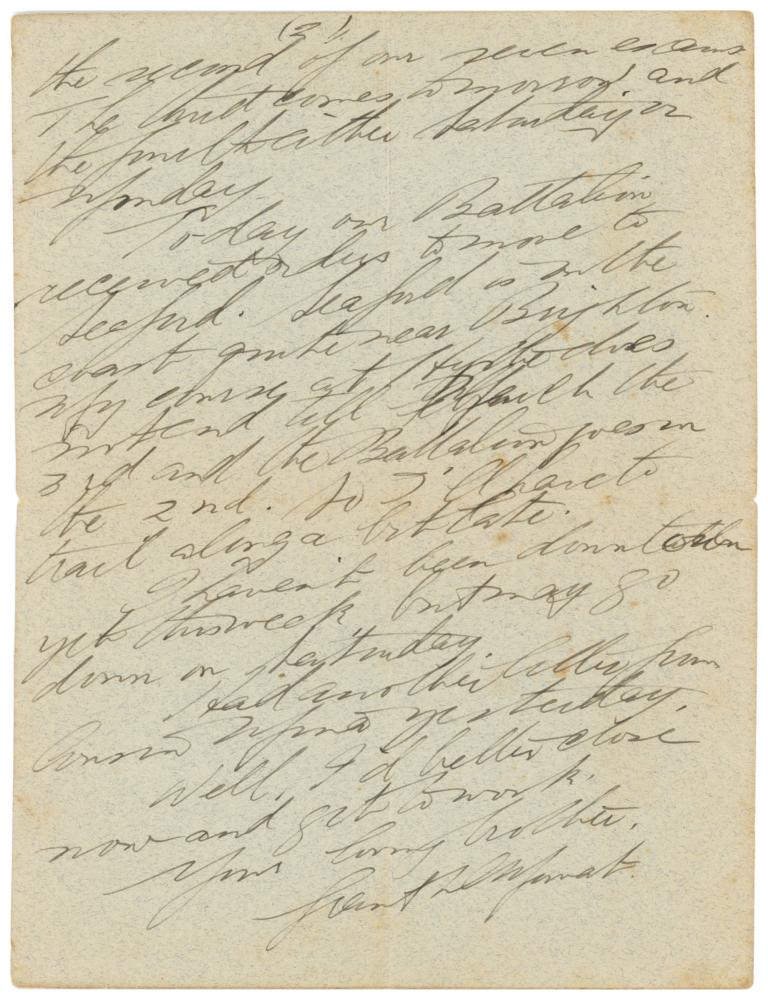 (2).
the second of our seven exams
The third comes tomorrow and
the fourth either Saturday or
Monday.
Today our Battalion
received orders to move to
Seaford. Seaford is on the
coast quite near Brighton.
My course at does
not end till March the
3rd and the Battalion goes on
the 2nd. So I'll have to
trail along a bit late.
I haven't been down town
yet this week but may go
down on Saturday.
Had another letter from
Cousin yesterday.
Well, I'd better close
now and get to work.
Your loving brother.